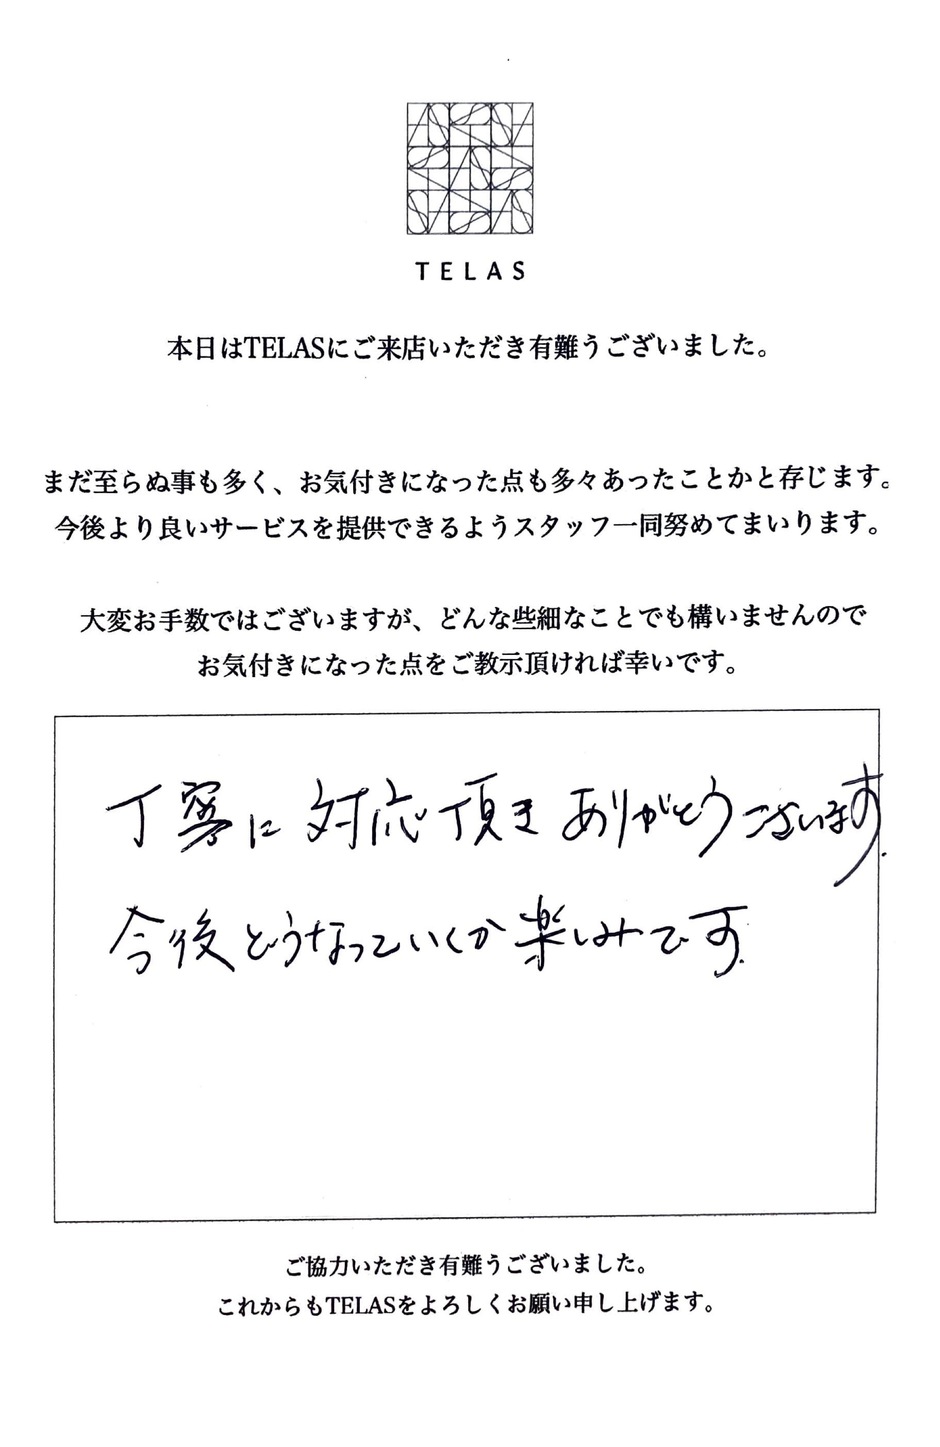 TELAS
本日はTELASにご来店いただき有難うございました。
まだ至らぬ事も多く、お気付きになった点も多々あったことかと存じます。
今後より良いサービスを提供できるようスタッフ一同努めてまいります。
大変お手数ではございますが、どんな些細なことでも構いませんので
お気付きになった点をご教示頂ければ幸いです。
丁寧に対応頂きありがとうございます.
今後どうなっていくか楽しみです.
ご協力いただき有難うございました。
これからもTELASをよろしくお願い申し上げます。